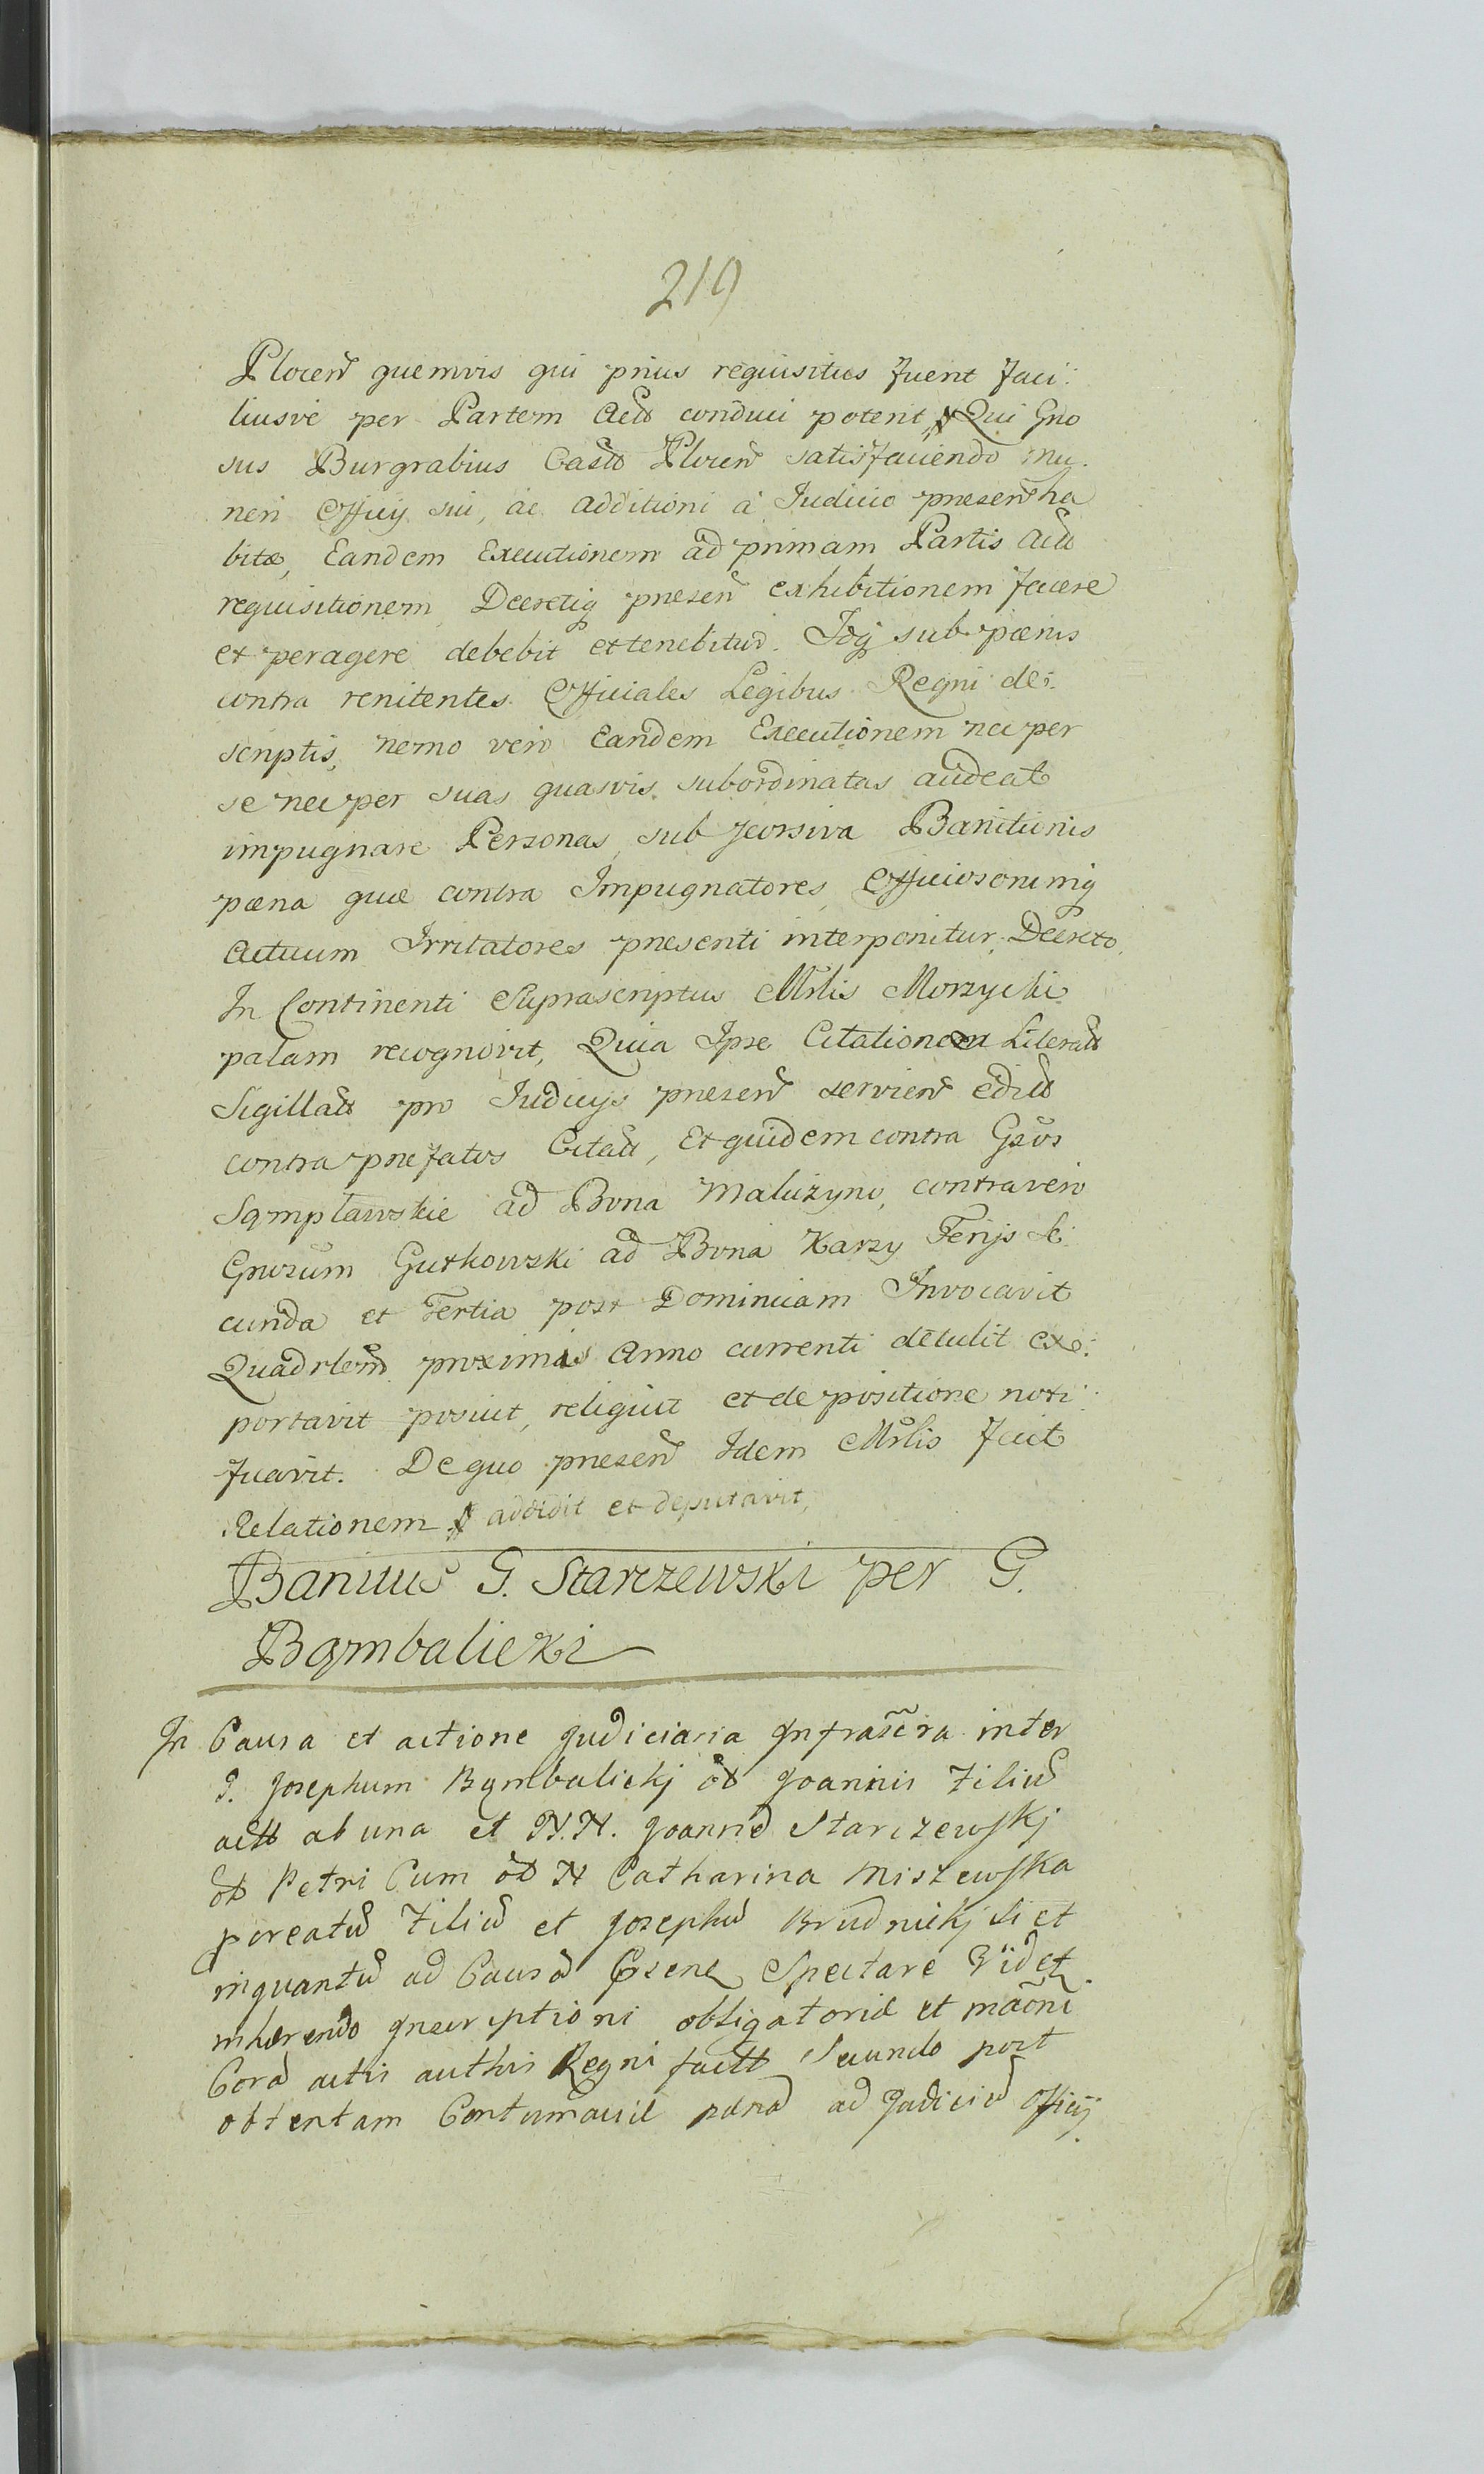 219
Plocen quemvis qui prius requisitus fuerit faci:
liusve per Partem Act conduci poterit, Qui Gno
sus Burgrabius Castr Plocen satisfaciendo mu:
neri Officy sui, ac additioni a Judicio presen ha
bitæ, Eandem Executionem ad primam Partis Act
requisitionem Decretiq presen exhibitionem facere
et peragere debebit et tenebitur. Idq sub pænis
contra renitentes Officiales Legibus Regni de:
scriptis, nemo vero Eandem Executionem nec per
se nec per suas quasvis subordinatas audeat
impugnare Personas, sub seorsiva Banitionis
pæna quæ contra Impugnatores Officiosorumq
Actuum Irritatores presenti interponitur Decreto.
In Continenti Suprascriptus Mrlis Morzycki
palam recognovit, Quia Ipse Citationem Literat
Sigillat pro Judicys presen servien edit
contra prefatos Citat, Et quidem contra Gsos
Sąmpławskie ad Bona Maluzyno, contra vero
Gnosum Gutkowski ad Bona Karzy Ferijs Se:
cunda et Tertia post Dominicam Invocavit
Quadrlem proximis Anno currenti detulit ex:
portavit posuit, reliquit et de positione noti:
ficavit. De quo presen Idem Mrlis fecit
Relationem addidit et deputavit,
Banitus G. Starczewski per G.
Bąmbalicki
In Causa et actione Judiciaria Infrascra inter
G. Josephum Bąmbalickj ol Joannis Filiu
act ab una et N.N. Joanne Starczewskj
ol Petri Cum ol N Catharina Miszewska
poreatu Filiu et Josephu Brudnickj si et
inquantu ad Causa Psene Spectare Videt
inhærendo inscriptioni obligatoriæ et maoni
Cora actis authis Regni fact Secundo post
obtentam Contumaciæ pæna ad Judiciu Officij